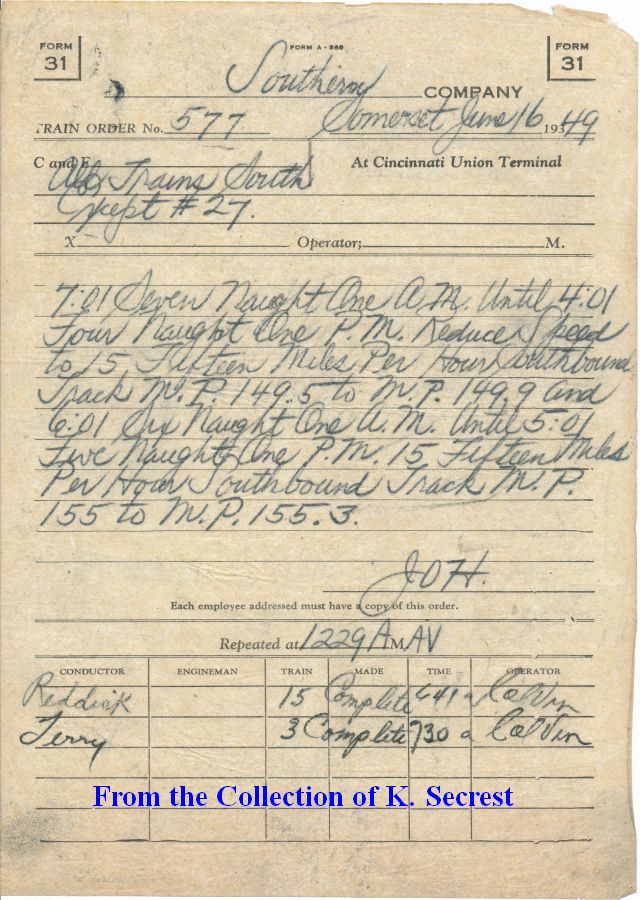 FORM 31
FORM A - 269
FORM 31
Southern COMPANY
TRAIN ORDER No. 577 Somerset June 16 1949
C and E All Trains South At Cincinnati Union Terminal
Exept # 27.
X Operator; M.
7:01 Seven Naught One A.M. Until 4:01
Four Naught One P.M. Reduce Speed
to 15 Fifteen Miles Per Hour Southbound
Track M.P. 149.5 to M.P. 149.9 and
6:01 Six Naught One A.M. Until 5:01
Five Naught One P.M. 15 Fifteen Miles
Per Hour Southbound Track M.P.
155 to M.P. 155.3.
J O H.
Each employee addressed must have a copy of this order.
Repeated at 1229 A M AV
CONDUCTOR ENGINEMAN TRAIN MADE TIME OPERATOR
Reddick 15 Complete 641 a Colvin
Terry 3 Complete 730 a Colvin
From the Collection of K. Secrest